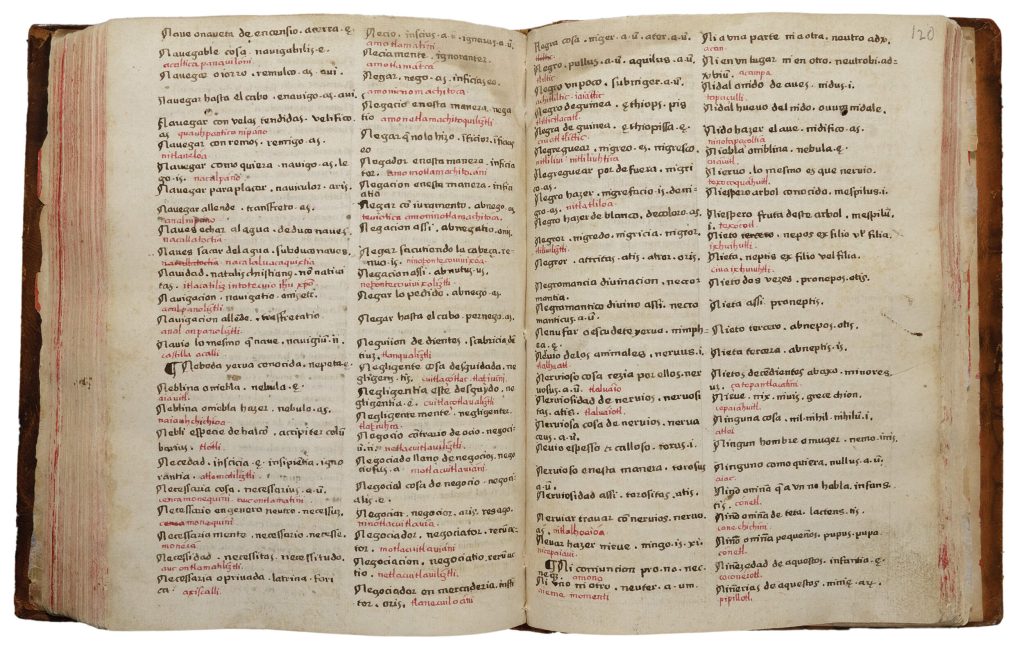 Naue onaueta de encensio. acerra. ę
Nauegable cosa. nauigabilis. e.
acaltica panauiloni
Nauegar oiorro. remulco. as. aui.
Nauegar hasta el cabo. enauigo. as. aui.
Nauegar con velas tendidas. velifico. as
quauhpantica nipano
Nauegar con remos. remigo. as.
nitlaneloa
Nauegar como quiera. nauigo. as. le
go. is. nacalpano
Nauegar para plazer. nauiculor. aris.
Nauegar allende. transfreto. as.
Naues echar al agua. deduco naues
nacallatochia
Naues sacar del agua. subduco naues
nacalalauacaquixtia
Nauidad. natalis christianus. nõ natiui
tas.
Nauigacion. nauigatio. onis.
acalpanoliztli
Nauigacion allẽde. trãsfretatio
anal onpanoliztli
Nauio lo mesmo q̃ naue. nauigiũ. ii.
castilla acalli
Neboda yerua conocida. nepeta. ę
Neblina oniebla. nebula. ę.
aiauitl
Neblina oniebla hazer. nebulo. as.
naiauhchichioa
Nebli especie de halcõ. accipiter colũ
barius. tlotli
Necedad. inscicia. ę. insipientia. igno
rantia. atlamatiliztli
Necessaria cosa. necessarius. a. ũ.
cenca monequini
Necessario en genero neutro. necessũ.
cenca monequini
Necessaria mente. necessario. necesse.
monequi
Necessidad. necessitas. necessitudo.
Necessaria o priuada. latrina. fori
ca. axixcalli.
Necio. inscius. a. ũ. ignarus. a. ũ.
amotlamatini
Neciamente. ignoranter.
amotlamatca
Negar. nego. as. inficias eo
amonicnomachitoca
Negacio en esta manera. nega
tio
Negar q̃ nolo hizo. inficior.
eo
Negador en esta manera. inficia
tor. amo motlamachitocani
Negacion en esta manera. infi
atio
Negar cõ iuramento. abnego. as
Negacion assi. abnegatio. onis
Negar sacutiendo la cabeça. re
nuo. is.
Negacion assi. abnutus. us.
Negar lo pedido. abnego. as
Negar hasta el cabo. pernego. as.
Neguijon de dientes. scabricia dẽ
tiũ. tlanqualiztli
Negligente cosa descuidada. ne
gligens. tis. cuitlatzollo tlatziuini
Negligentia este descuydo. ne
gligentia. ę. cuitlatzollotl
Negligente mente. negligenter.
tlatziuhca
Negocio contrario de ocio. negoci
ũ. ii. netlacuitlauiliztli
Negociado lleno de negocios. nego
ciosus. a motlacuitlauiani
Negocial cosa de negocio. negoti
alis. e.
Negociar. negocior. aris. res ago.
ninotlacuitlauia
Negociador. negociator. rerũ ac
tor. motlacuitlauiani
Negociacion. negociatio. rerũ ac
tio. netlacuitlauiliztli
Negociador en mercaderia. insti
tor. oris. tlanecuiloani
120
Negra cosa. niger. a. ũ. ater. a. ũ.
tliltic
Negro. pullus. a. ũ. aquilus. a. ũ.
tliltic
Negro vn poco. subniger. a. ũ.
Negro de guinea. ęthiops. pis
tliltictlacatl
Negra de guinea. ęthiopissa. ę.
ciuatliltic
Negreguear. nigreo. es. nigresco.
nitliliui. nitliliuhtica
Negreguear por de fuera. nigri
co. as.
Negro hazer. nigrefacio. is. deni
gro. as. nitlatliloa
Negro hazer de blanco. decoloro. as.
Negror. nigredo. nigricia. nigror.
tliliuiztli
Negror. atritas. atis. atror. oris.
Negromancia diuinacion. necro
mantia.
Negramantico diuino assi. necro
manticus. a. ũ.
Nenufar o escudete yerua. nimph
ea.
Neruio de los animales. neruus. i.
tlaluatl
Neruioso cosa rezia por ellos. ner
uosus. a. ũ. tlaluaio
Neruiosidad de neruios. neruosi
tas. atis. tlaluaiotl
Neruiosa cosa de neruios. nerua
ceus. a. ũ.
Neruio espesso & calloso. torus. i.
Neruioso en esta manera. torosus
a. ũ.
Neruiosidad assi. torositas. atis.
Neruiar trauar cõ neruios. neruo.
as. nitlalhoaioa
Neuar hazer nieue. ningo. is. xi.
cepaiaui.
Ni coniuncion pro. no. nec.
neq̃. amono
Ni vno ni otro. neuter. a. um.
Ni a vna parte ni a otra. neutro adv.
Ni en vn lugar ni en otro. neutrobi ad
uerbiũ. acampa
Nidal o nido de aues. nidus. i.
tapaçulli
Nidal hueuo del nido. ouum nidale.
Nido hazer el aue. nidifico. as
ninotapaçoltia
Niebla o niblina. nebula. ę.
aiauitl
Nieruo. lo mesmo es que neruio.
Niespero arbol conocido. mespilus. i.
Niespero fruta deste arbol. mespilũ.
i. texocotl
Nieto. nepos ex filio vl filia.
ixhuiuhtli
Nieta. neptis ex filio vel filia.
ciua ixhuiuhtli
Nieto dos vezes. pronepos. otis.
Nieta assi. proneptis.
Nieto tercero. abnepos. otis.
Nieta tercera. abneptis. is.
Nietos decendientes abaxo. minores
Nieue. nix. niuis. grece chion.
cepaiauitl
Ninguna cosa. nil. nihil. nihilũ. i.
atlei
Ningun hombre o muger. nemo. inis.
Ninguno como quiera. nullus. a. ũ.
aiac
Niño o niña q̃ a vn no habla. infans.
tis. conetl
Niño o niña de teta. lactens. tis.
cone chichini
Niño o niña pequeños. pupus. pupa
conetl
Niñez edad de aquestos. infantia. ę.
coneiotl
Niñerias de aquestos. nenię. arũ.
pipillotl